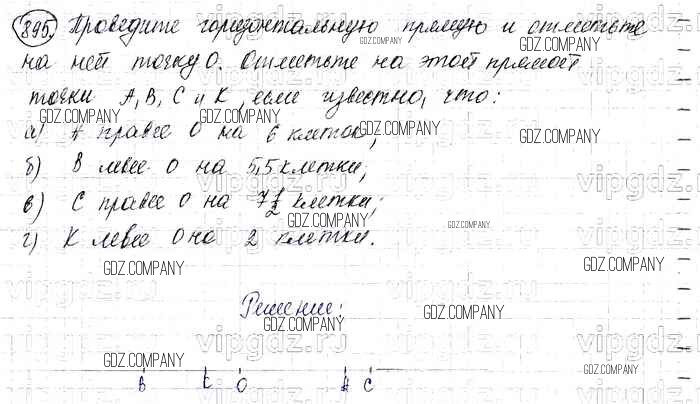 895. Проведите горизонтальную прямую и отметьте
на ней точку О. Отметьте на этой прямой
точки А, В, С и К, если известно, что:
а) А правее О на 6 клеток;
б) В левее О на 5,5 клетки;
в) С правее О на 7 1/2 клетки;
г) К левее О на 2 клетки.
Решение:
В К О А С
GDZ.COMPANY
GDZ.COMPANY
GDZ.COMPANY
GDZ.COMPANY
GDZ.COMPANY
GDZ.COMPANY
GDZ.COMPANY
GDZ.COMPANY
GDZ.COMPANY
GDZ.COMPANY
GDZ.COMPANY
GDZ.COMPANY
GDZ.COMPANY
vipgdz.ru
vipgdz.ru
vipgdz.ru